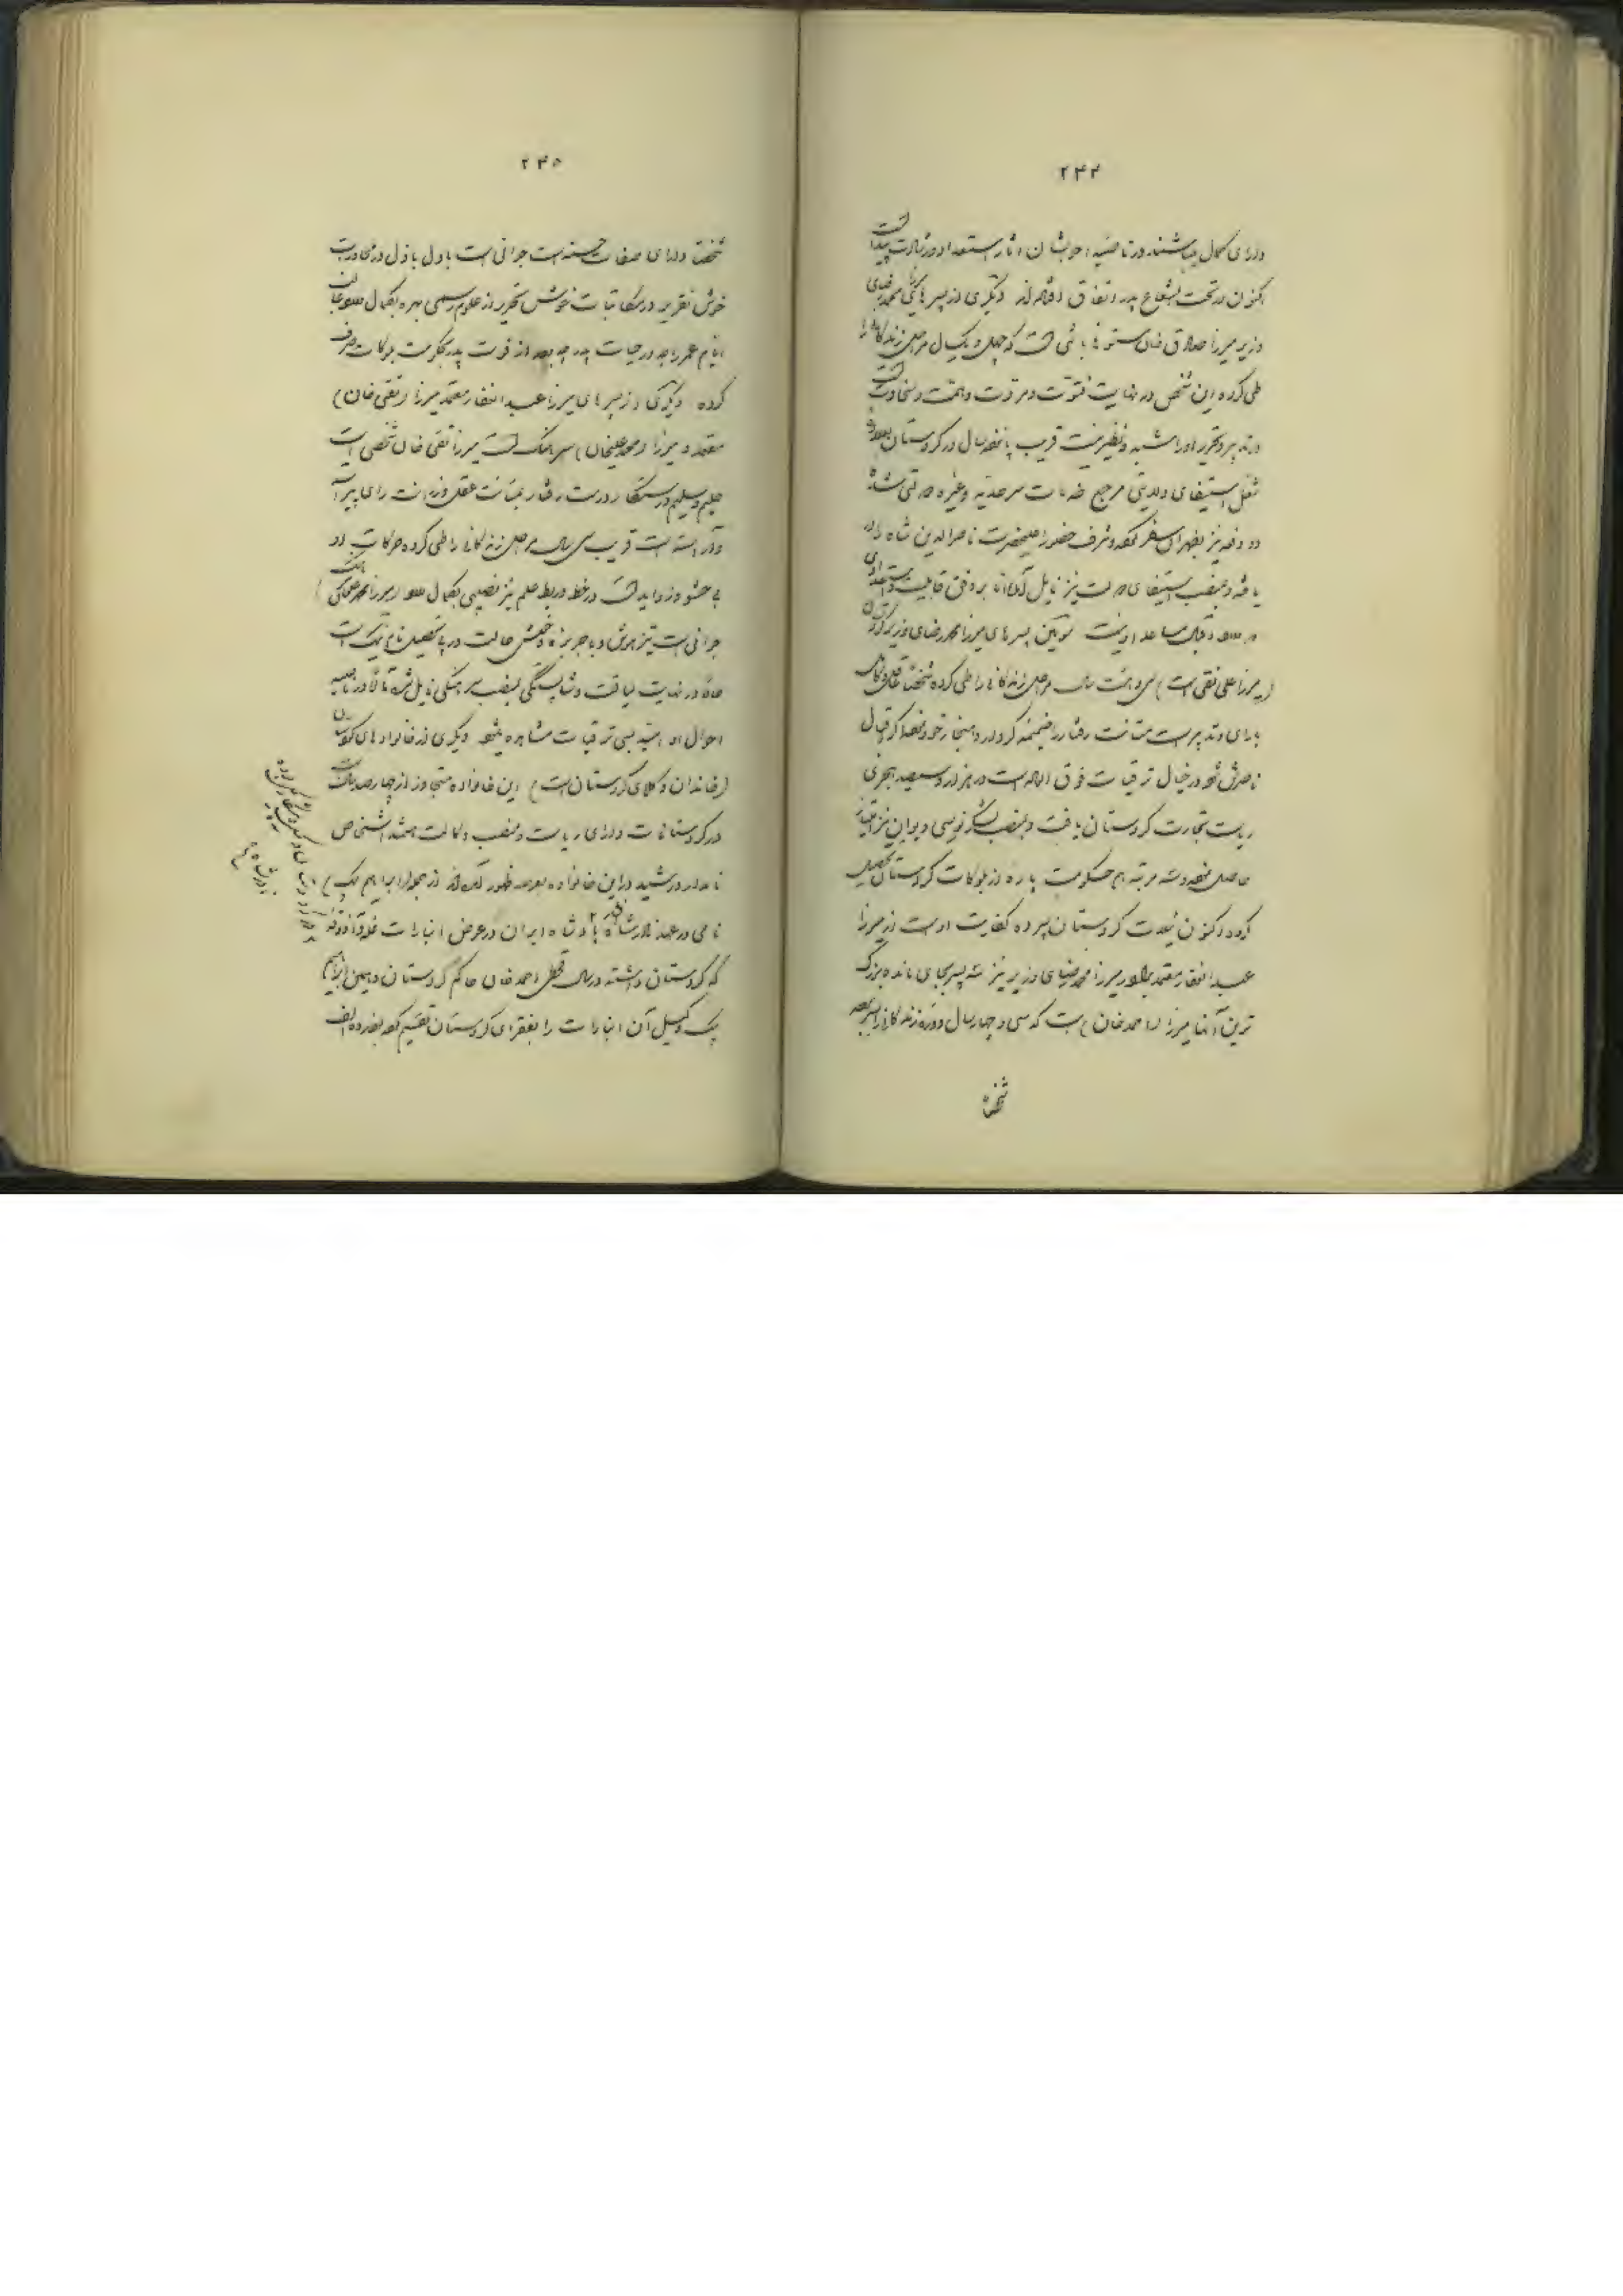 ۲۴۴
دارای کمال میباشند در ناصیه احوالشان آثار استعداد و رشادت پیداست
اکنون در تحت شعاع پدر اتفاق افتاده‌اند دیگری از پسرهای میرزا محمد رضای
وزیر میرزا صادق خان مستوفا باشی است که چهل و یکسال مراحل زندگانی را
طی کرده این شخص در نهایت فتوت و مروت و همت و سخاوت است
در تدبیر و تحریر او را شبه و نظیر نیست قریب پانزده سال در کردستان
شغل استیفای ولایتی مرجع خدمات سرحدیه و غیره دولتی شده
دو دفعه نیز بطهران سفر نموده شرف حضور اعلیحضرت ناصرالدین شاه را
یافته و بمنصب استیفای دولت نیز نایل آمده اما بر وفق قابلیت و استعدادی
که دارد اقبال مساعد او نیست سومین پسرهای میرزا محمد رضای وزیر کردستان
(میرزا علی نقی است) سی و هشت سال مراحل زندگانی را طی کرده شخصا عاقل و کامل
با رأی و تدبیر است متانت رفتار را ضمیمه کردار و هنجار خود نموده اگر اقبال
ناصرش شود در خیال ترقیات فوق العاده است در هزار و سیصد هجری
ریاست تجارت کردستان یافت و بمنصب لشکر نویسی دیوان نیز امتیاز
حاصل نموده سه مرتبه هم حکومت پاره از بلوکات کردستان تحصیل
کرده و اکنون نیابت کردستان سپرده کفایت اوست از میرزا
عبدالغفار معتمد برادر میرزا محمد رضای وزیر نیز سه پسر بجای مانده بزرگ
ترین آنها میرزا (احمد خان) است که سی و چهار سال دوره زندگانی را بسر برده
شخصا
۲۴۵
شخصا دارای صفات حسنه است جوانی است با دل باذل در محاورت
خوش تقریر در مکاتبات خوش تحریر از علوم رسمی بهره بکمال دارد غالب
ایام عمر را چه در حیات پدر چه بعد از فوت پدر بحکومت بلوکات صرف
کرده دیگری از پسرهای میرزا عبدالغفار معتمد میرزا (تقی خان)
معتمد و میرزا (محمد علیخان) سرهنگ است میرزا تقی خان شخصی است
حلیم و سلیم درستکار و درست رفتار بمتانت عقل و رزانت رای پیراسته
و آراسته است قریب سی سال مراحل زندگانی را طی کرده حرکات او
بی حشو و زواید است در خط و ربط علم نیز نصیبی بکمال دارد (میرزا محمد علیخان سرهنگ)
جوانی است تیز هوش و با جربزه و خویش حالت در پی تحصیل نام نیک است
حالا در نهایت لیاقت و شایستگی بمنصب سرهنگی نایل شده مآلا در ناصیه
احوال او امید بسی ترقیات مشاهده میشود دیگری از خانواده‌های کردستان
(خاندان وکلای کردستان است) این خانواده متجاوز از چهارصد سال است
در کردستانات دارای ریاست و منصب وکالت هستند اشخاص
نامدار و رشید در این خانواده بعرصه ظهور آمده‌اند از جمله (ابراهیم بیک)
نامی در عهد نادرشاه افشار پادشاه ایران در عوض انبارات غله و آذوقه
که کردستان داشته در سال قحطی احمد خان حاکم کردستان و همین ابراهیم
بیک وکیل آن انبارات را بفقرای کردستان تقسیم کرده بفرموده